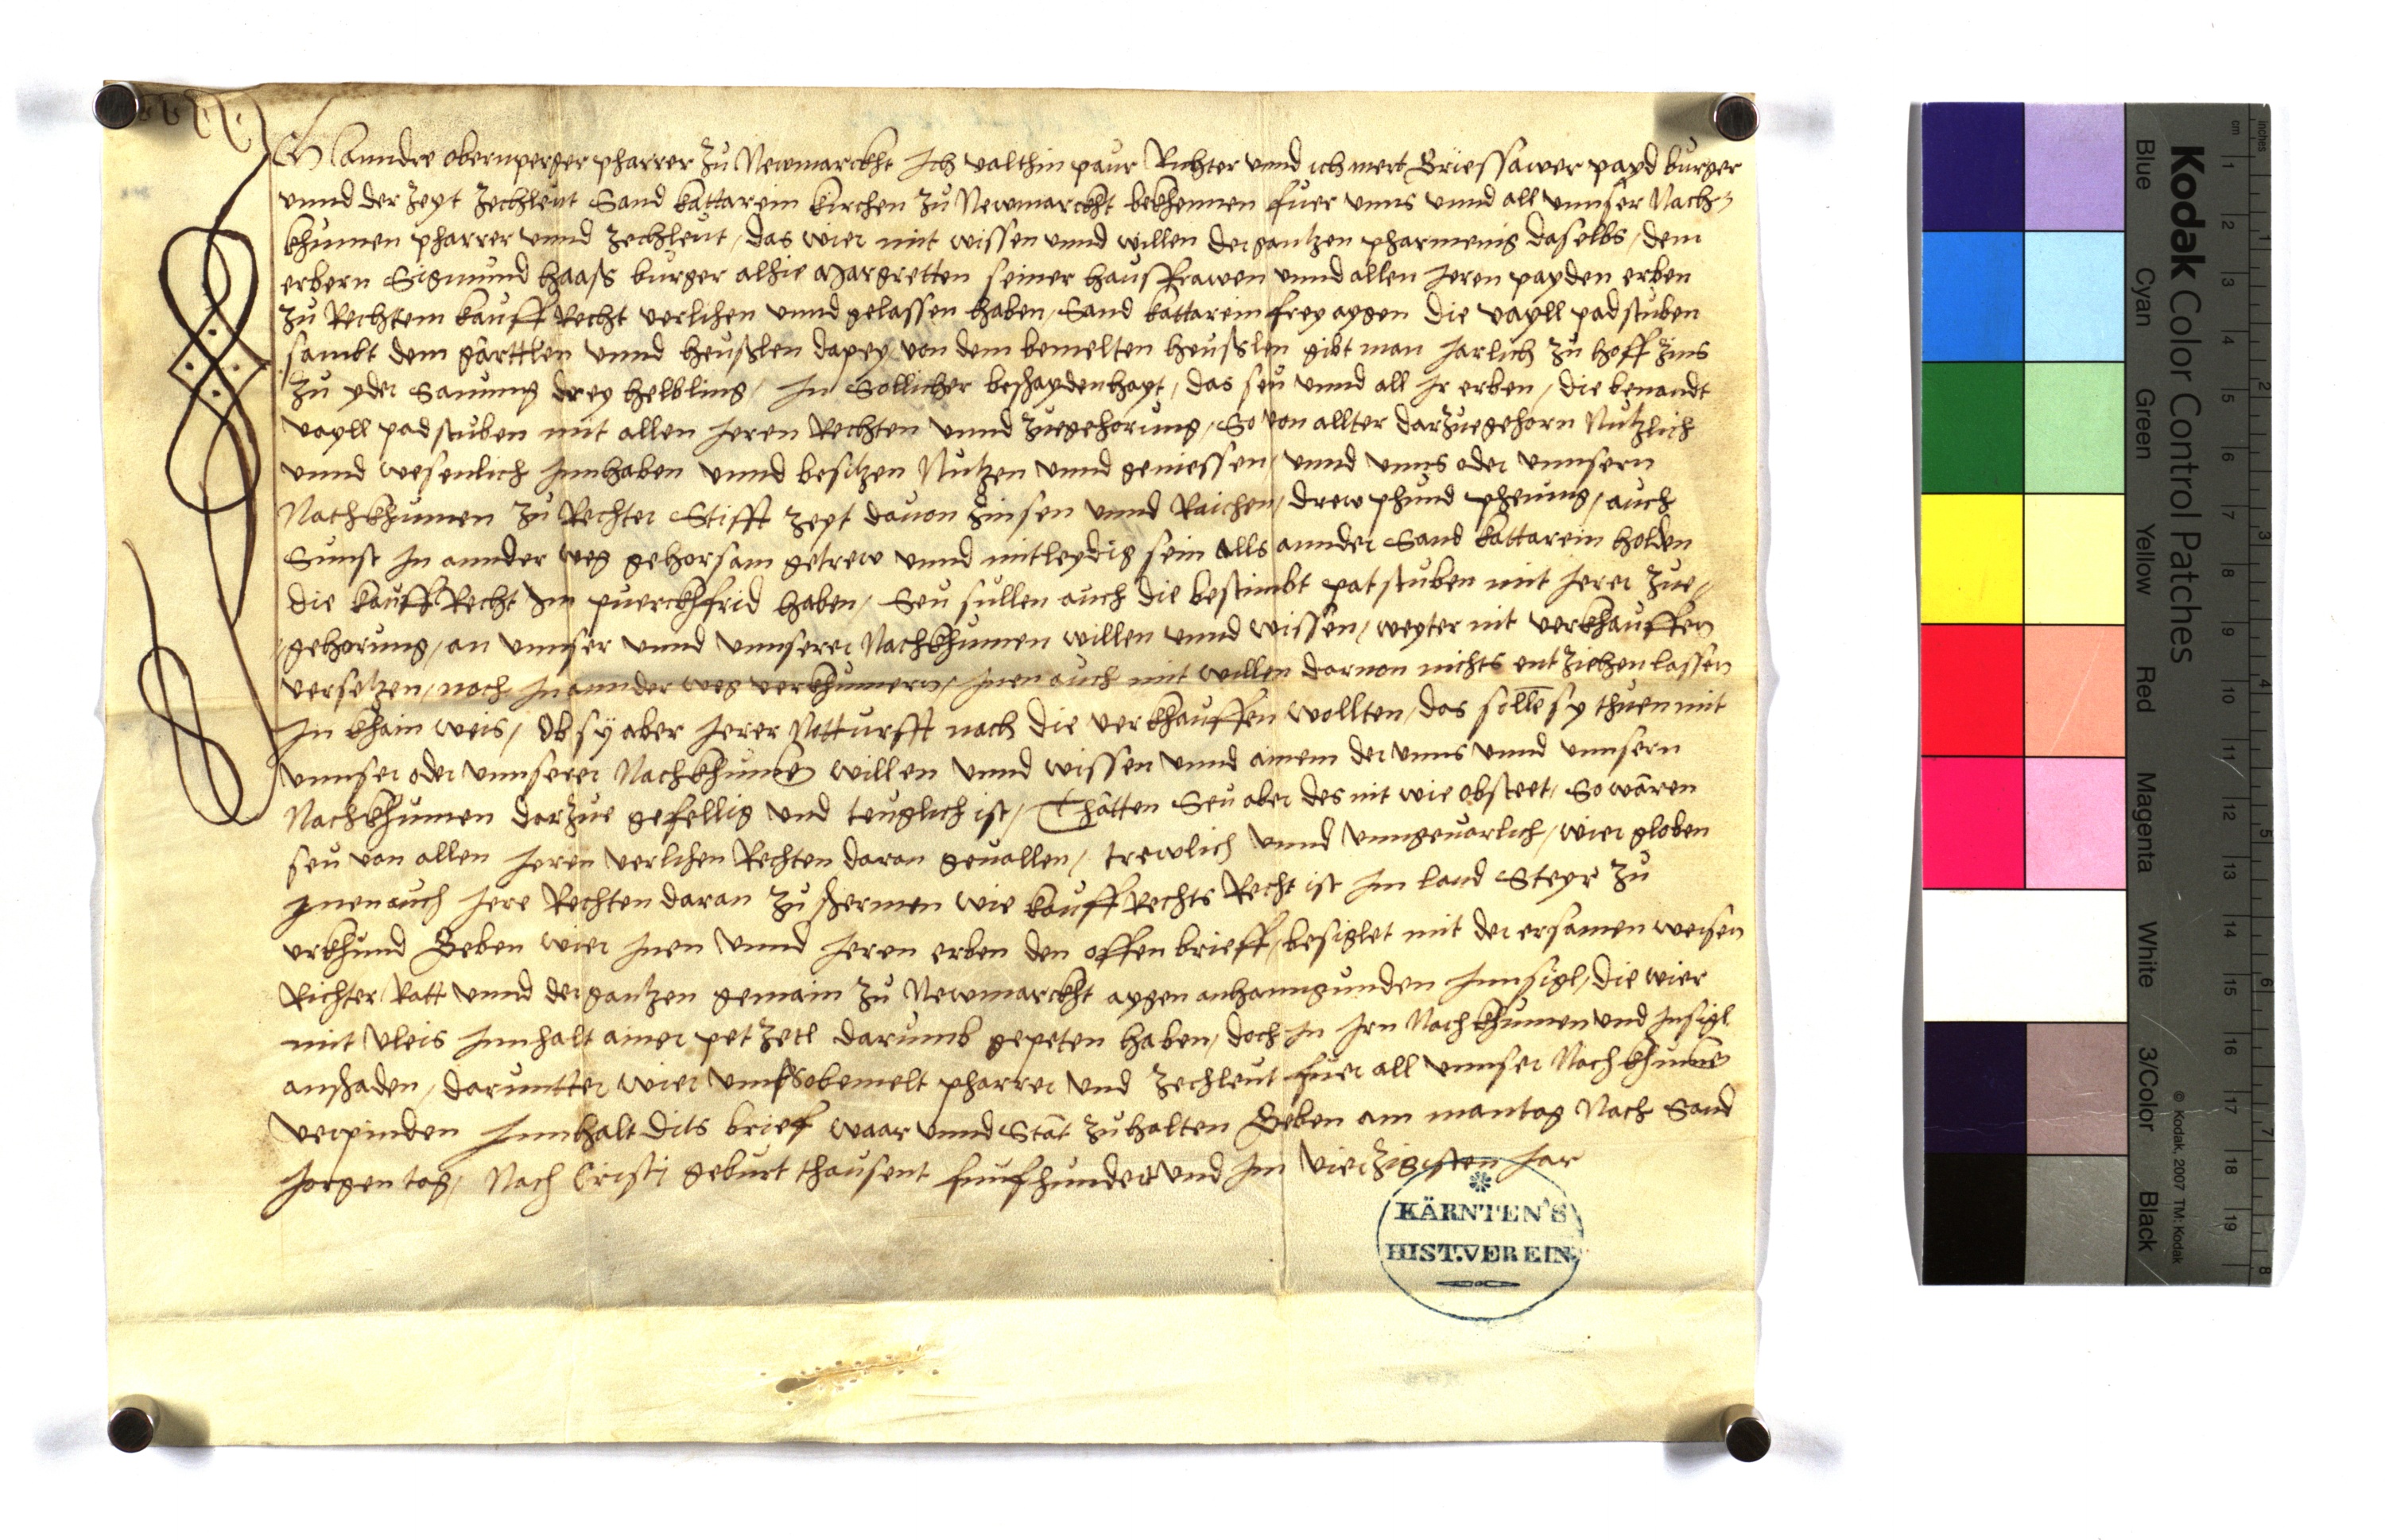 Ich anndre obernperger pharrer zu Newmarckht Ich valthin paur Richter vnnd ich mert Griessawer payd burger
vnnd der zeyt zechleut Sand kattarein kirchen zu Newmarckht bekhennen fuer vnns vnnd all vnnser Nach¬
khumen pharrer vnnd zechleut, das wier mit wissen vnnd willen der gantzen pharmenig daselbs, dem
erbern Sigmund haass burger alhie Margretten seiner hausfrawen vnnd allen Jeren payden erben
zu Rechtem kauff Recht verlihen vnnd gelassen haben, Sand kattarein frey aygen die vayll padstuben
sambt dem gärttlen vnnd heusslen dapey, von dem bemelten heusslen gibt man Jarlich zu hoff zins
zu yder Samung drey helbling, In Sollicher beschaydenhayt, das seu vnnd all Ir erben, die benandt
vayll padstuben mit allen Jeren Rechten vnnd zuegehorung, So von allter darzuegehorn Nutzlich
vnnd wesenlich Innhaben vnnd besitzen Nutzen vnnd geniessen, vnnd vnns oder vnnsern
Nachkhumen zu Rechter Stifft zeyt dauon zinsen vnnd Raichen, drew phund phening, auch
Sunst In annder weg gehorsam getrew vnnd mitleydig sein alls annder Sand kattarein holden
die kauff Recht Im puerckhfrid haben, Seu sullen auch die bestimbt patstuben mit Jerer zue¬
gehorung, an vnnser vnnd vnnserer Nachkhumen willen vnnd wissen, weyter nit verkhauffen
versetzen, noch In annder weg verkhumern, Jnen auch mit willen daruon nichts entziehen lassen
In khain weis, Ob sy aber Jerer Notturfft nach die verkhauffen wollten, das sollē sy thuen mit
vnnser oder vnnserer Nachkhumē willen vnnd wissen vnnd ainem der vnns vnnd vnnsern
Nachkhumen darzue gefellig vnd teuglich ist, Thätten Seu aber des nit wie obsteet, So wären
seu von allen Jeren verlihen Rechten daran geuallen, trewlich vnnd vnngeuarlich, wier globen
Jnen auch Jere Rechten daran zuschermen wie kauff Rechts Recht ist Im land Steyr zu
vrkhund Geben wier Jnen vnnd Jeren erben den offen brieff, besiglet mit der ersamen weysen
Richter Ratt vnnd der gantzen gemain zu Newmarckht aygen anhanngunden Innsigl, die wier
mit vleis Innhalt ainer petzetl darumb gepeten haben, doch In Irn Nachkhumen vnd Insigl
anschaden, darunntter wier vnns obemelt pharrer vnd zechleut fuer all vnnser Nachkhumē
verpinden Innhalt dits brief waar vnnd Stät zuhalten Geben am mantag Nach Sand
Jorgen tag, Nach Cristi geburt thausent funfhundert vnd Im vierzigisten Jar
KÄRNTEN'S
HIST.VEREIN
Kodak Color Control Patches
Blue Cyan Green Yellow Red Magenta White 3/Color Black
© Kodak, 2007 TM: Kodak
cm 1 2 3 4 5 6 7 8 9 10 11 12 13 14 15 16 17 18 19
inches 1 2 3 4 5 6 7 8